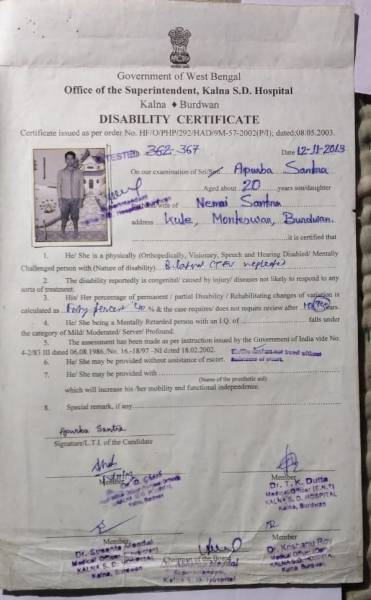 Government of West Bengal
Office of the Superintendent, Kalna S.D. Hospital
Kalna ♦ Burdwan
DISABILITY CERTIFICATE
Certificate issued as per order No. HF/O/PHP/292/HAD/9M-57-2002(P/I); dated:08.05.2003.
ATTESTED 362-367 Date 12-11-2013
On our examination of Sri/Smt. Apurba Santra
Aged about 20 years son/daughter
wife of Nemai Santra
address Kule, Monteswar, Burdwan.
it is certified that
1. He/ She is a physically (Orthopedically, Visionary, Speech and Hearing Disabled/ Mentally
Challenged person with (Nature of disability). Bilateral CTEV neglected
2. The disability reportedly is congenital/ caused by injury/ diseases not likely to respond any
sorts of treatment.
3. His/ Her percentage of permanent / partial Disability / Rehabilitating changes of variation is
calculated as Forty percent 40 % & the case requires/ does not require review after years.
4. He/ She being a Mentally Retarded person with an I.Q. of falls under
the category of Mild/ Moderated/ Server/ Profound.
5. The assessment has been made as per instruction issued by the Government of India vide No.
4-2/83 III dated 06.08.1986./No. 16-18/97 -NI dated 18.02.2002.
6. He/ She may be provided without assistance of escort.
7. He/ She may be provided with
(Name of the prosthetic aid)
which will increase his/her mobility and functional independence.
8. Special remark, if any
Apurba Santra
Signature/L.T.I. of the Candidate
Member
Member
Dr. T. K. Dutta
Medical Officer (E.N.T)
KALNA S. D. HOSPITAL
Kalna, Burdwan
Member
Medical Officer
KALNA S. D. HOSPITAL
Kalna, Burdwan
Chairman of the Board
Superintendent
Kalna S. D. Hospital
Member
Medical Officer
KALNA S.D. HOSPITAL
Kalna, Burdwan